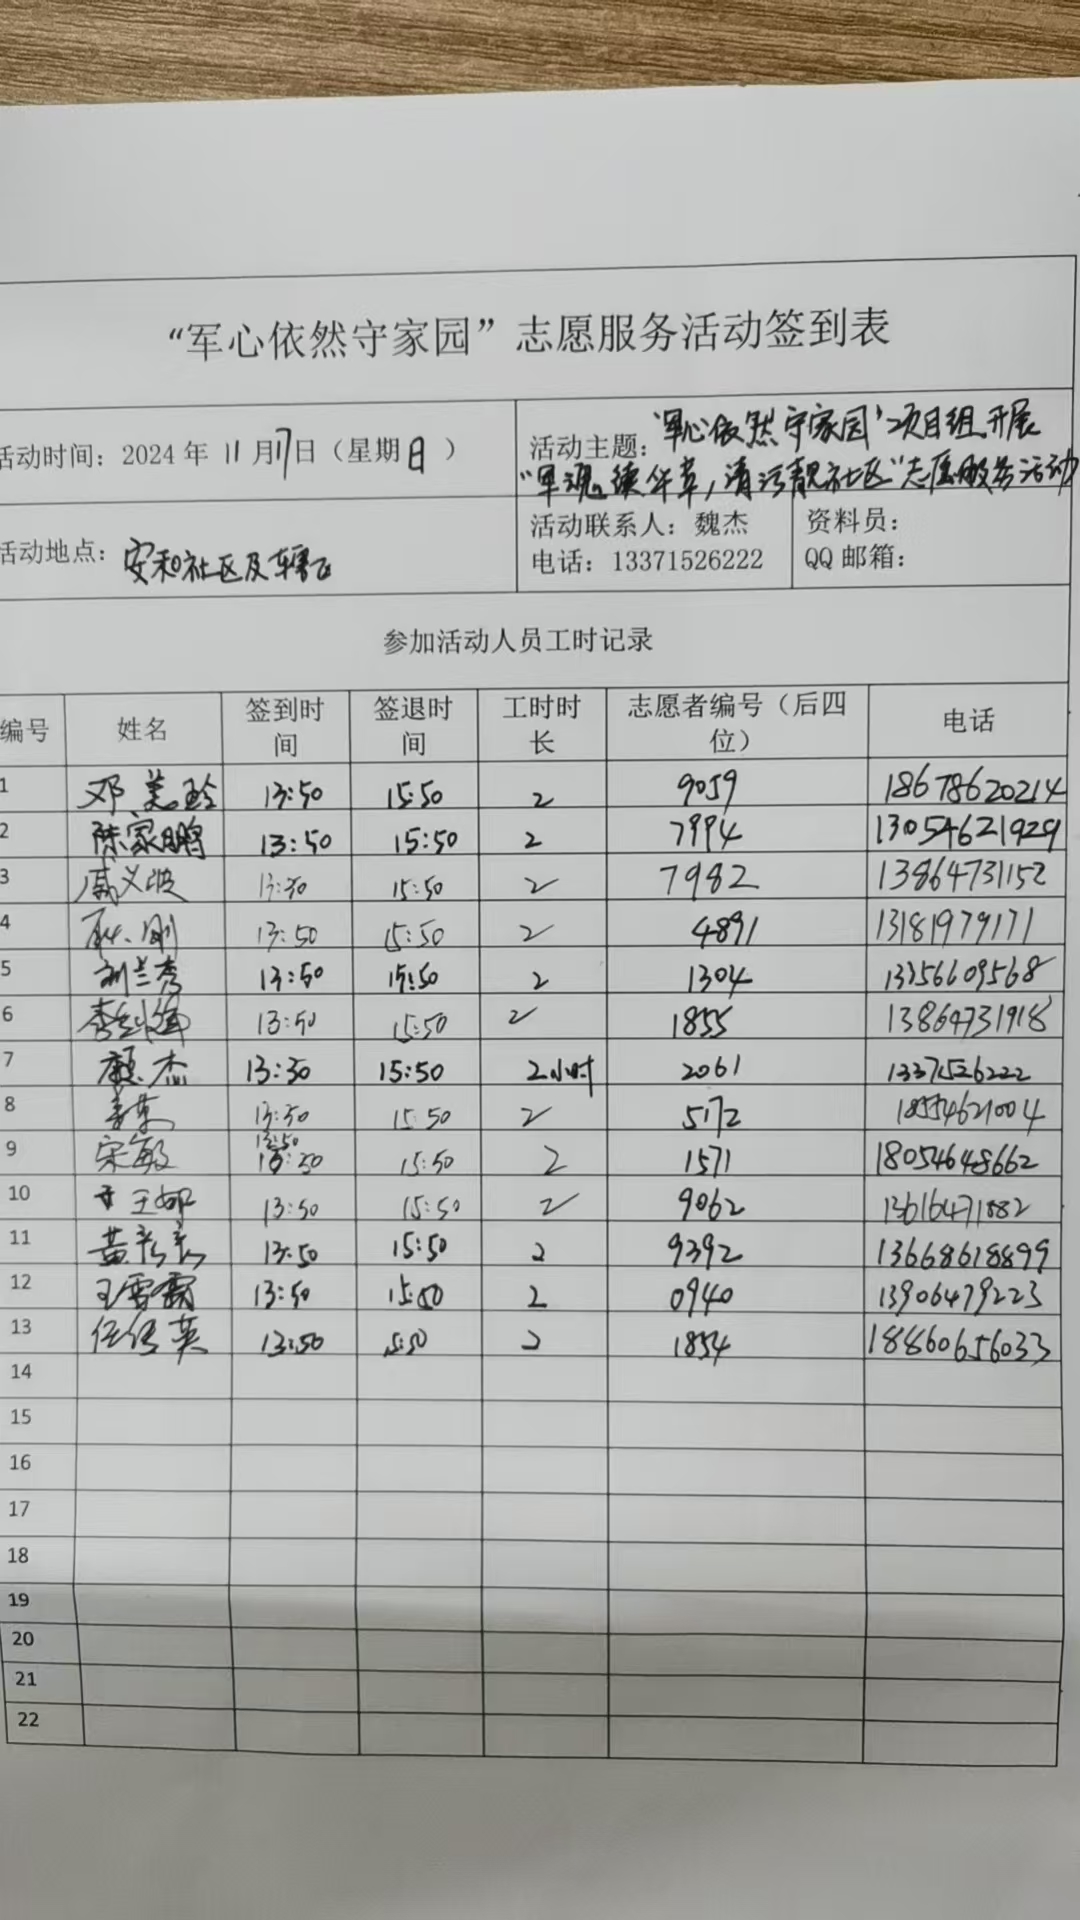 “军心依然守家园”志愿服务活动签到表
活动时间：2024年11月17日（星期日）
活动主题：“军心依然守家园”项目组开展
“军魂续华章，清污靓社区”志愿服务活动
活动地点：安和社区及辖区
活动联系人：魏杰
电话：13371526222
资料员：
QQ邮箱：
参加活动人员工时记录
编号 姓名 签到时间 签退时间 工时时长 志愿者编号（后四位） 电话
1 邓美玲 13:50 15:50 2 9059 18678620214
2 陈家鹏 13:50 15:50 2 7994 13054621929
3 13:30 15:50 2 7982 13864731152
4 耿刚 13:50 15:50 2 4891 13181979171
5 刘兰秀 13:50 15:50 2 1304 13356609568
6 13:50 15:50 2 1855 13864731918
7 魏杰 13:30 15:50 2小时 2061 13371526222
8 13:30 15:50 2 5172 18554621004
9 宋敏 13:50 15:50 2 1571 18054648662
10 13:50 15:50 2 9062 13616471882
11 13:50 15:50 2 9392 13668618899
12 王雪霞 13:50 15:50 2 0940 13906479223
13 13:50 15:50 2 1854 18860656033
14
15
16
17
18
19
20
21
22